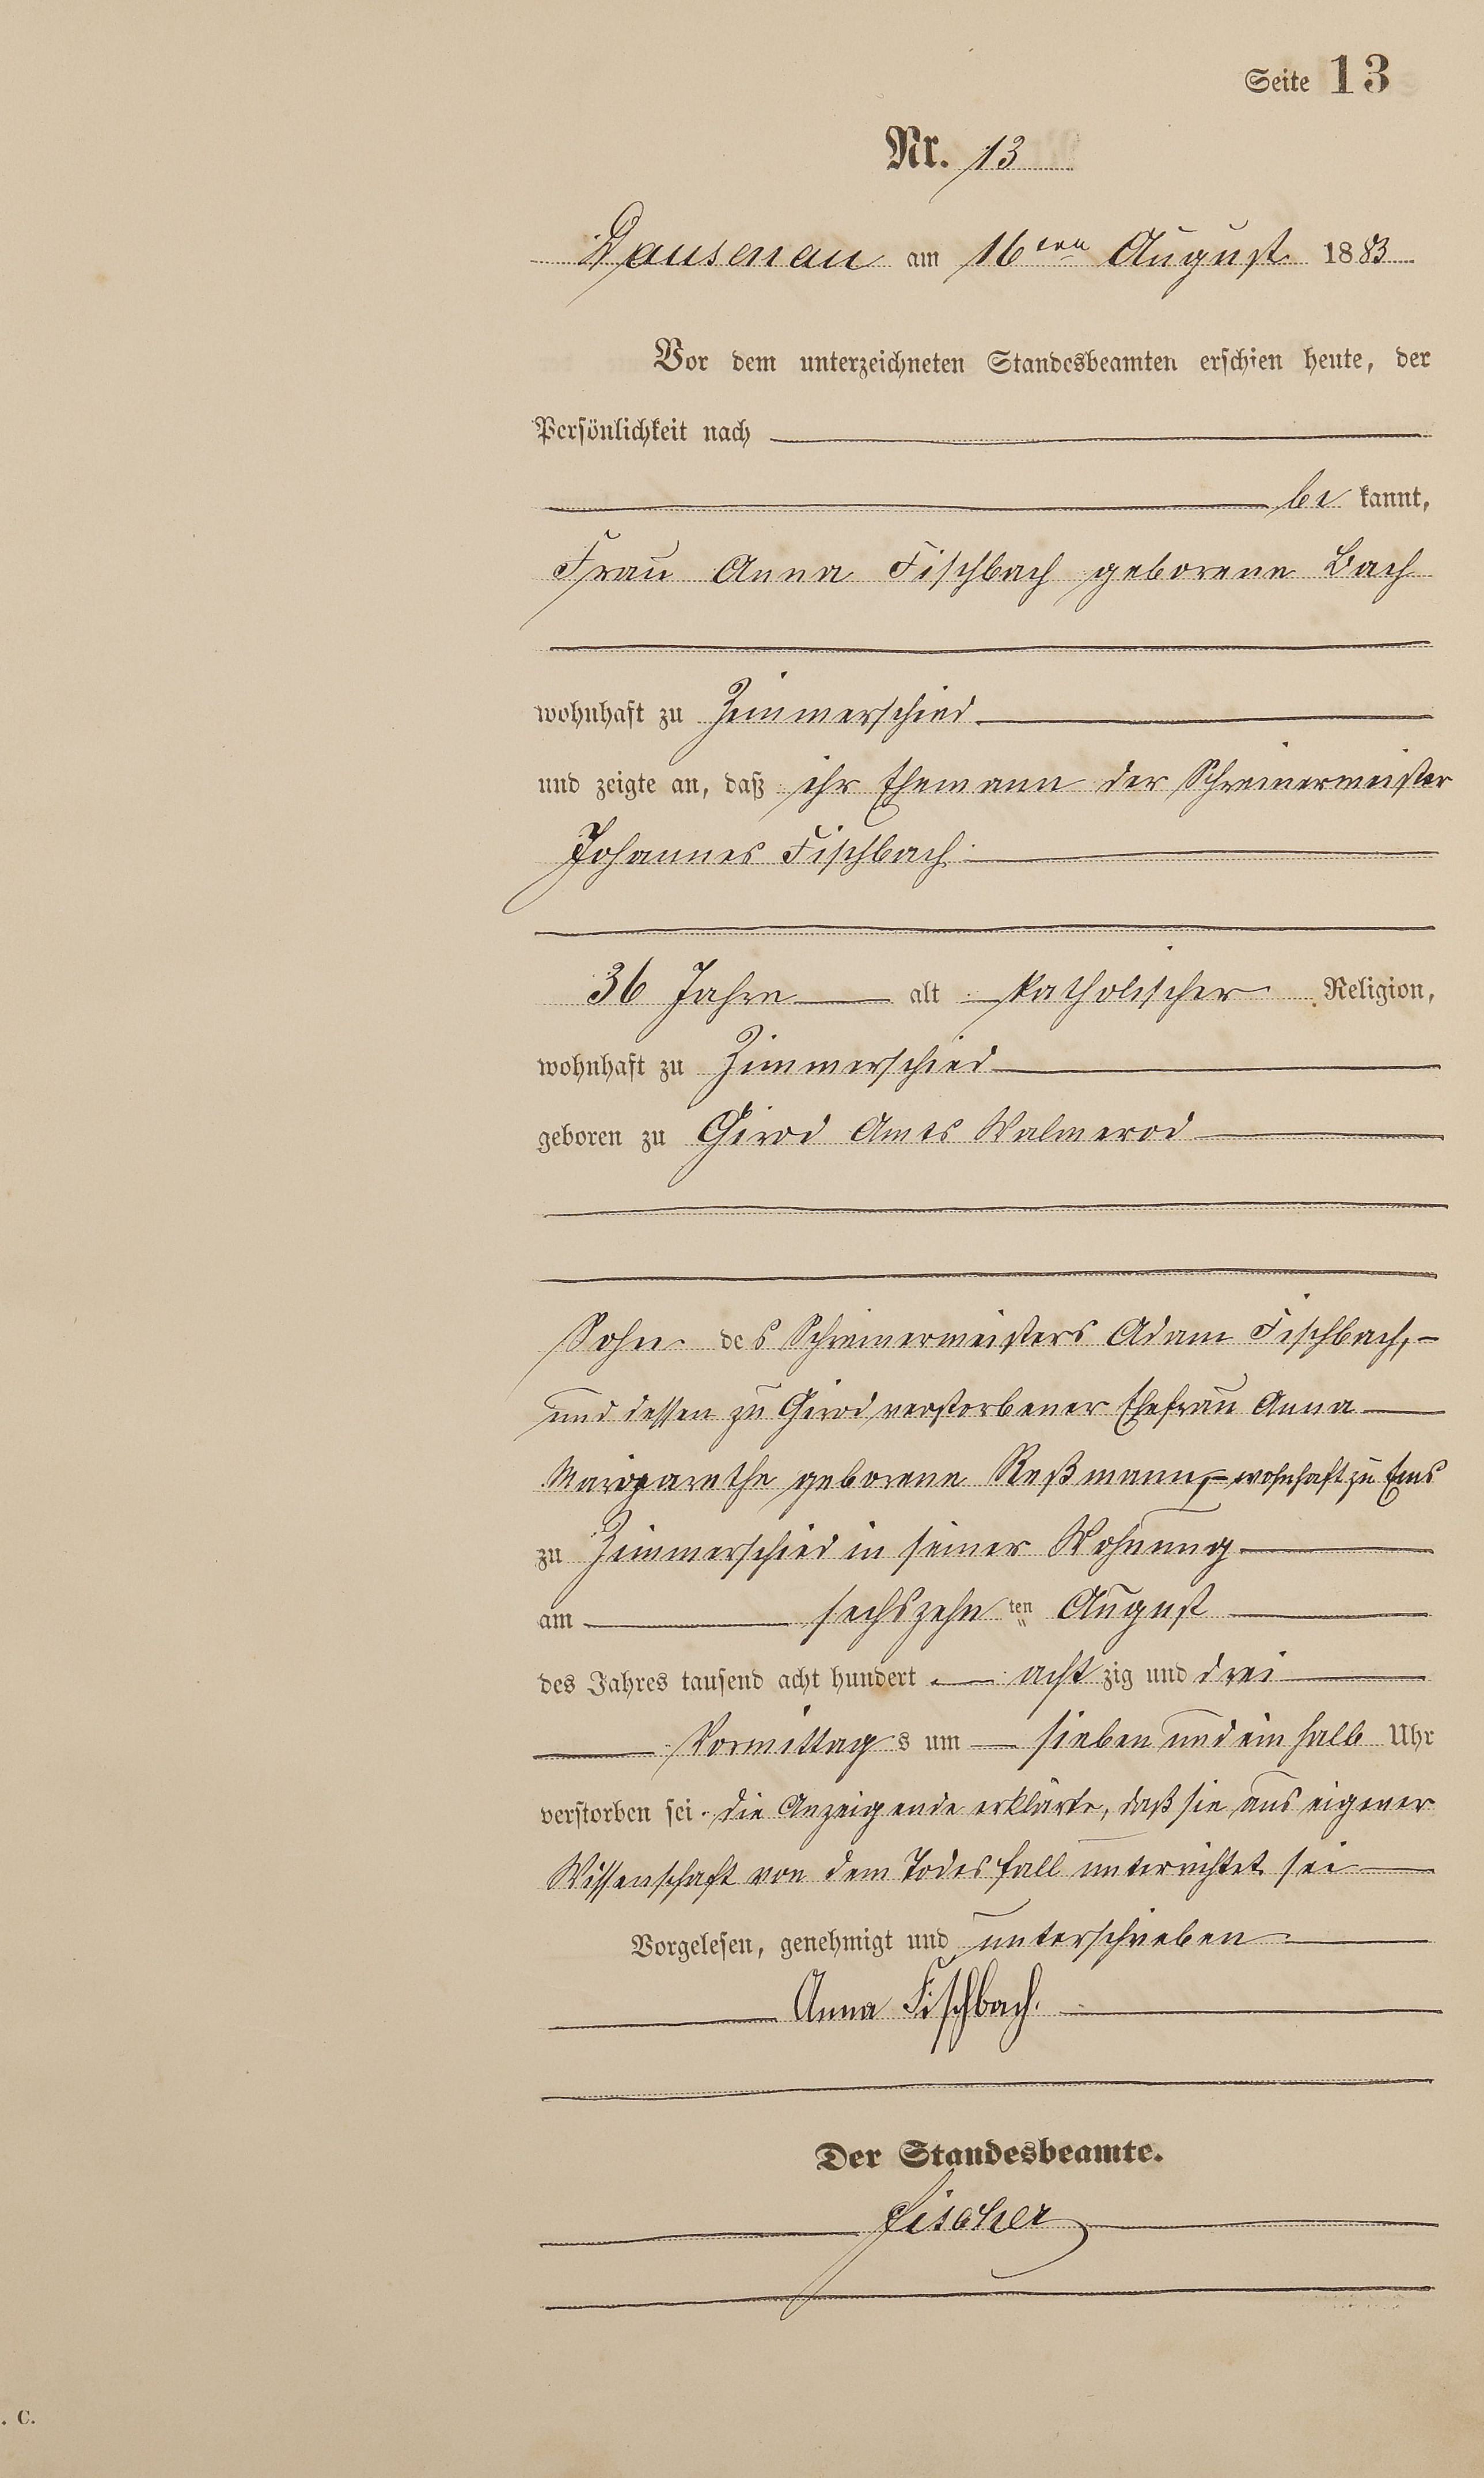 Seite 13
Nr. 13
Dausenau am 16ten August 1883
Vor dem unterzeichneten Standesbeamten erschien heute, der
Persönlichkeit nach
be kannt,
Frau Anna Fischbach geborene Bach
wohnhaft zu Zimmerschied
und zeigte an, daß ihr Ehemann der Schreinermeister
Johannes Fischbach
36 Jahre alt katholischer Religion,
wohnhaft zu Zimmerschied
geboren zu Girod Amts Walmerod
Sohn des Schreinermeisters Adam Fischbach,
und dessen zu Girod verstorbener Ehefrau Anna
Margarethe geborene Reßmann, wohnhaft zu Ems
zu Zimmerschied in seiner Wohnung
am sechszehn ten August
des Jahres tausend acht hundert acht zig und drei
Vormittag s um sieben und ein halb Uhr
verstorben sei. die Anzeigende erklärte, daß sie aus eigener
Wissenschaft von dem Todesfall unterrichtet sei
Vorgelesen, genehmigt und unterschrieben
Anna Fischbach.
Der Standesbeamte.
Fischer
. C.